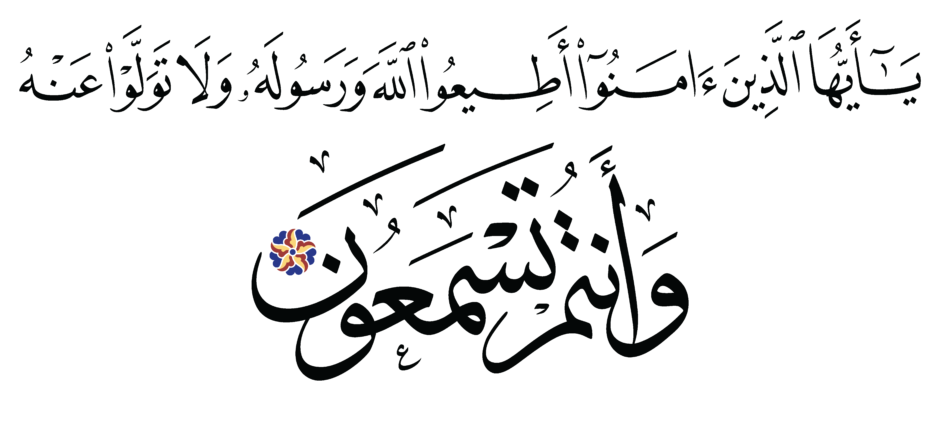 يَـٰٓأَيُّهَا ٱلَّذِينَ ءَامَنُوٓا۟ أَطِيعُوا۟ ٱللَّهَ وَرَسُولَهُۥ وَلَا تَوَلَّوْا۟ عَنْهُ
وَأَنتُمْ تَسْمَعُونَ